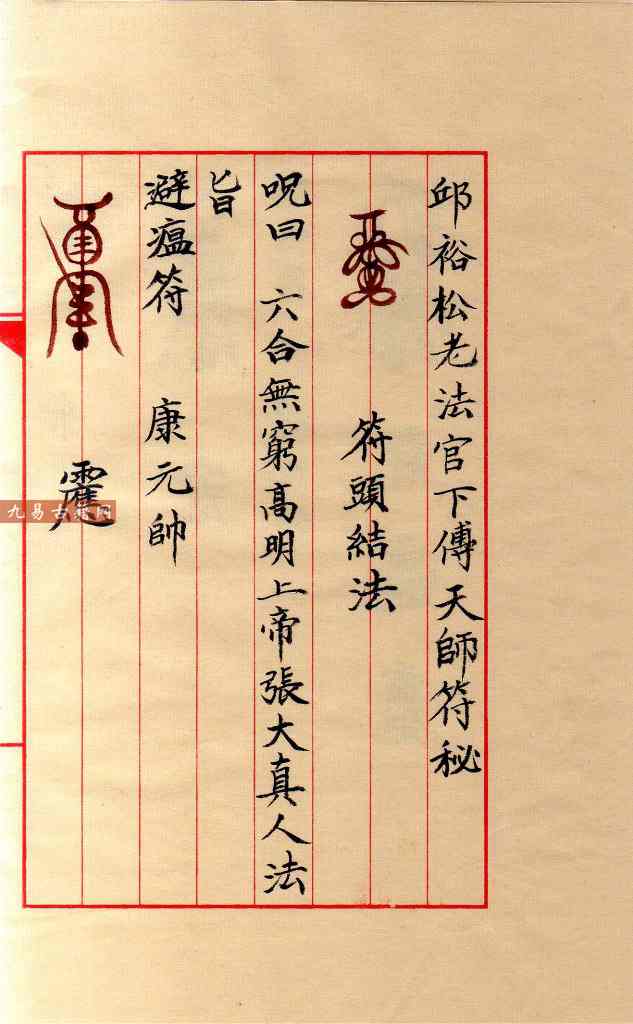 邱裕松老法官下傳天師符秘
符頭結法
呪曰 六合無窮高明上帝張大真人法
旨
避瘟符 康元帥
九易古籍网